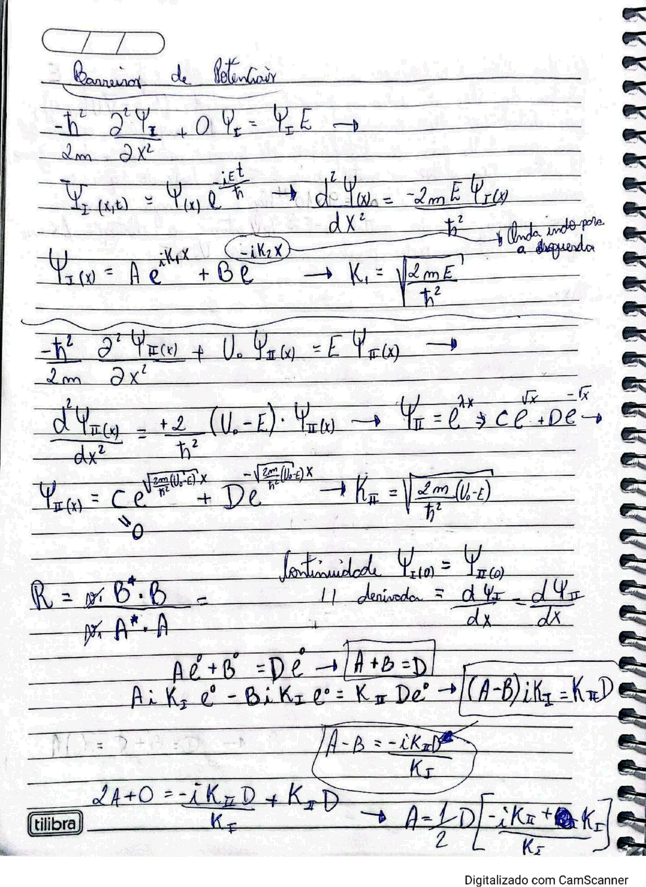 Barreiras de Potenciais
-ħ²/2m ∂²Ψ_I/∂x² + 0 Ψ_I = Ψ_I E →
Ψ_I(x,t) = Ψ(x) e^(iEt/ħ) → d²Ψ(x)/dx² = -2mE/ħ² Ψ_I(x)
↳ Onda indo para a esquerda
Ψ_I(x) = A e^(iK₁x) + B e^(-iK₂x) → K₁ = √(2mE/ħ²)
-ħ²/2m ∂²Ψ_II(x)/∂x² + U₀ Ψ_II(x) = E Ψ_II(x) →
d²Ψ_II(x)/dx² = +2/ħ² (U₀-E) · Ψ_II(x) → Ψ_II = e^(λx) ⇒ C e^(√x) + D e^(-√x) →
Ψ_II(x) = C e^(√(2m/ħ²(U₀-E)) x) + D e^(-√(2m/ħ²(U₀-E)) x) → K_II = √(2m(U₀-E)/ħ²)
0
Continuidade Ψ_I(0) = Ψ_II(0)
R = B*·B / A*·A =
" derivada = dΨ_I/dx = dΨ_II/dx
Ae⁰ + B⁰ = De⁰ → A+B=D
A i K_I e⁰ - B i K_I e⁰ = K_II D e⁰ → (A-B) i K_I = K_II D
A-B = -i K_II D / K_I
2A+0 = -i K_II D / K_I + K_II D → A = 1/2 D [-i K_II + K_I / K_I]
tilibra
Digitalizado com CamScanner